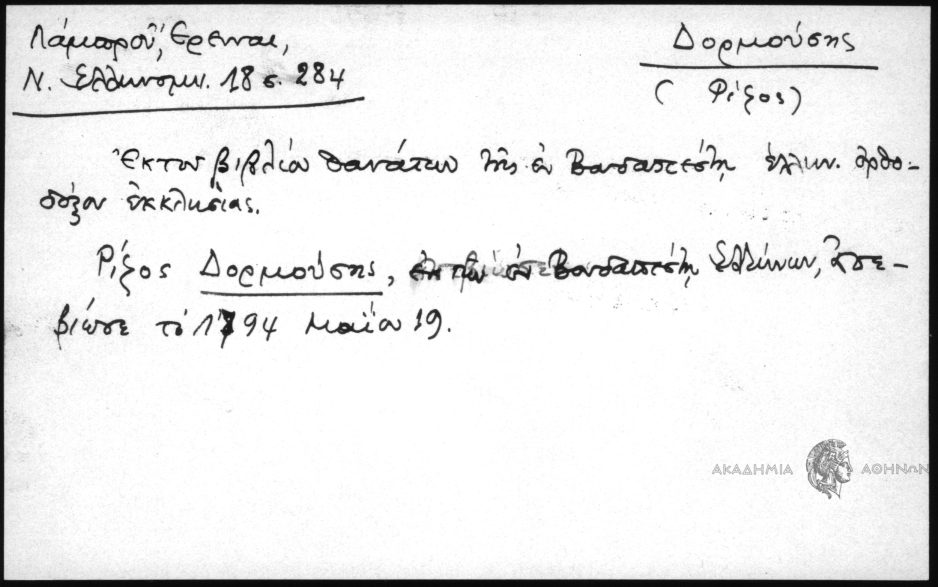 Λάμπρου, Έρευναι,
Ν. Ελληνομν. 18 σ. 284
Δορμούσης
(Ρίζος)
Ἐκ του βιβλίου θανάτων τῆς ἐν Βουδαπέστῃ ἑλλην. ὀρθο-
δόξου ἐκκλησίας.
Ρίζος Δορμούσης, ἐκ τῶν ἐν Βουδαπέστῃ Ἑλλήνων, ἀπε-
βίωσε τὸ 1794 Μαΐου 19.
ΑΚΑΔΗΜΙΑ ΑΘΗΝΩΝ